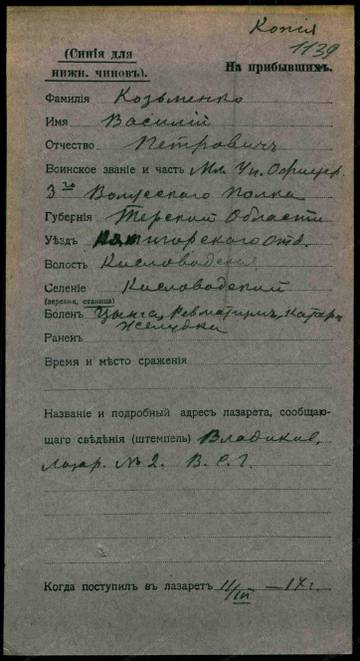 Копія
1139
(Синія для
нижн. чиновъ).
На прибывшихъ.
Фамилія Козьменко
Имя Василій
Отчество Петровичъ
Воинское званіе и часть Мл. Ун. Офицер.
3го Волжского Полка
Губернія Терской Области
Уѣздъ Пятигорского Отд.
Волость Кисловодская
Селеніе Кисловодский
(деревня, станица)
Боленъ Цынга, Ревматизм, Катар
Желудка
Раненъ
Время и мѣсто сраженія
Названіе и подробный адресъ лазарета, сообщаю-
щаго свѣдѣнія (штемпель) Владикав.
Лазар. № 2. В. С. Г.
Когда поступилъ въ лазаретъ 11/III — 17 г.